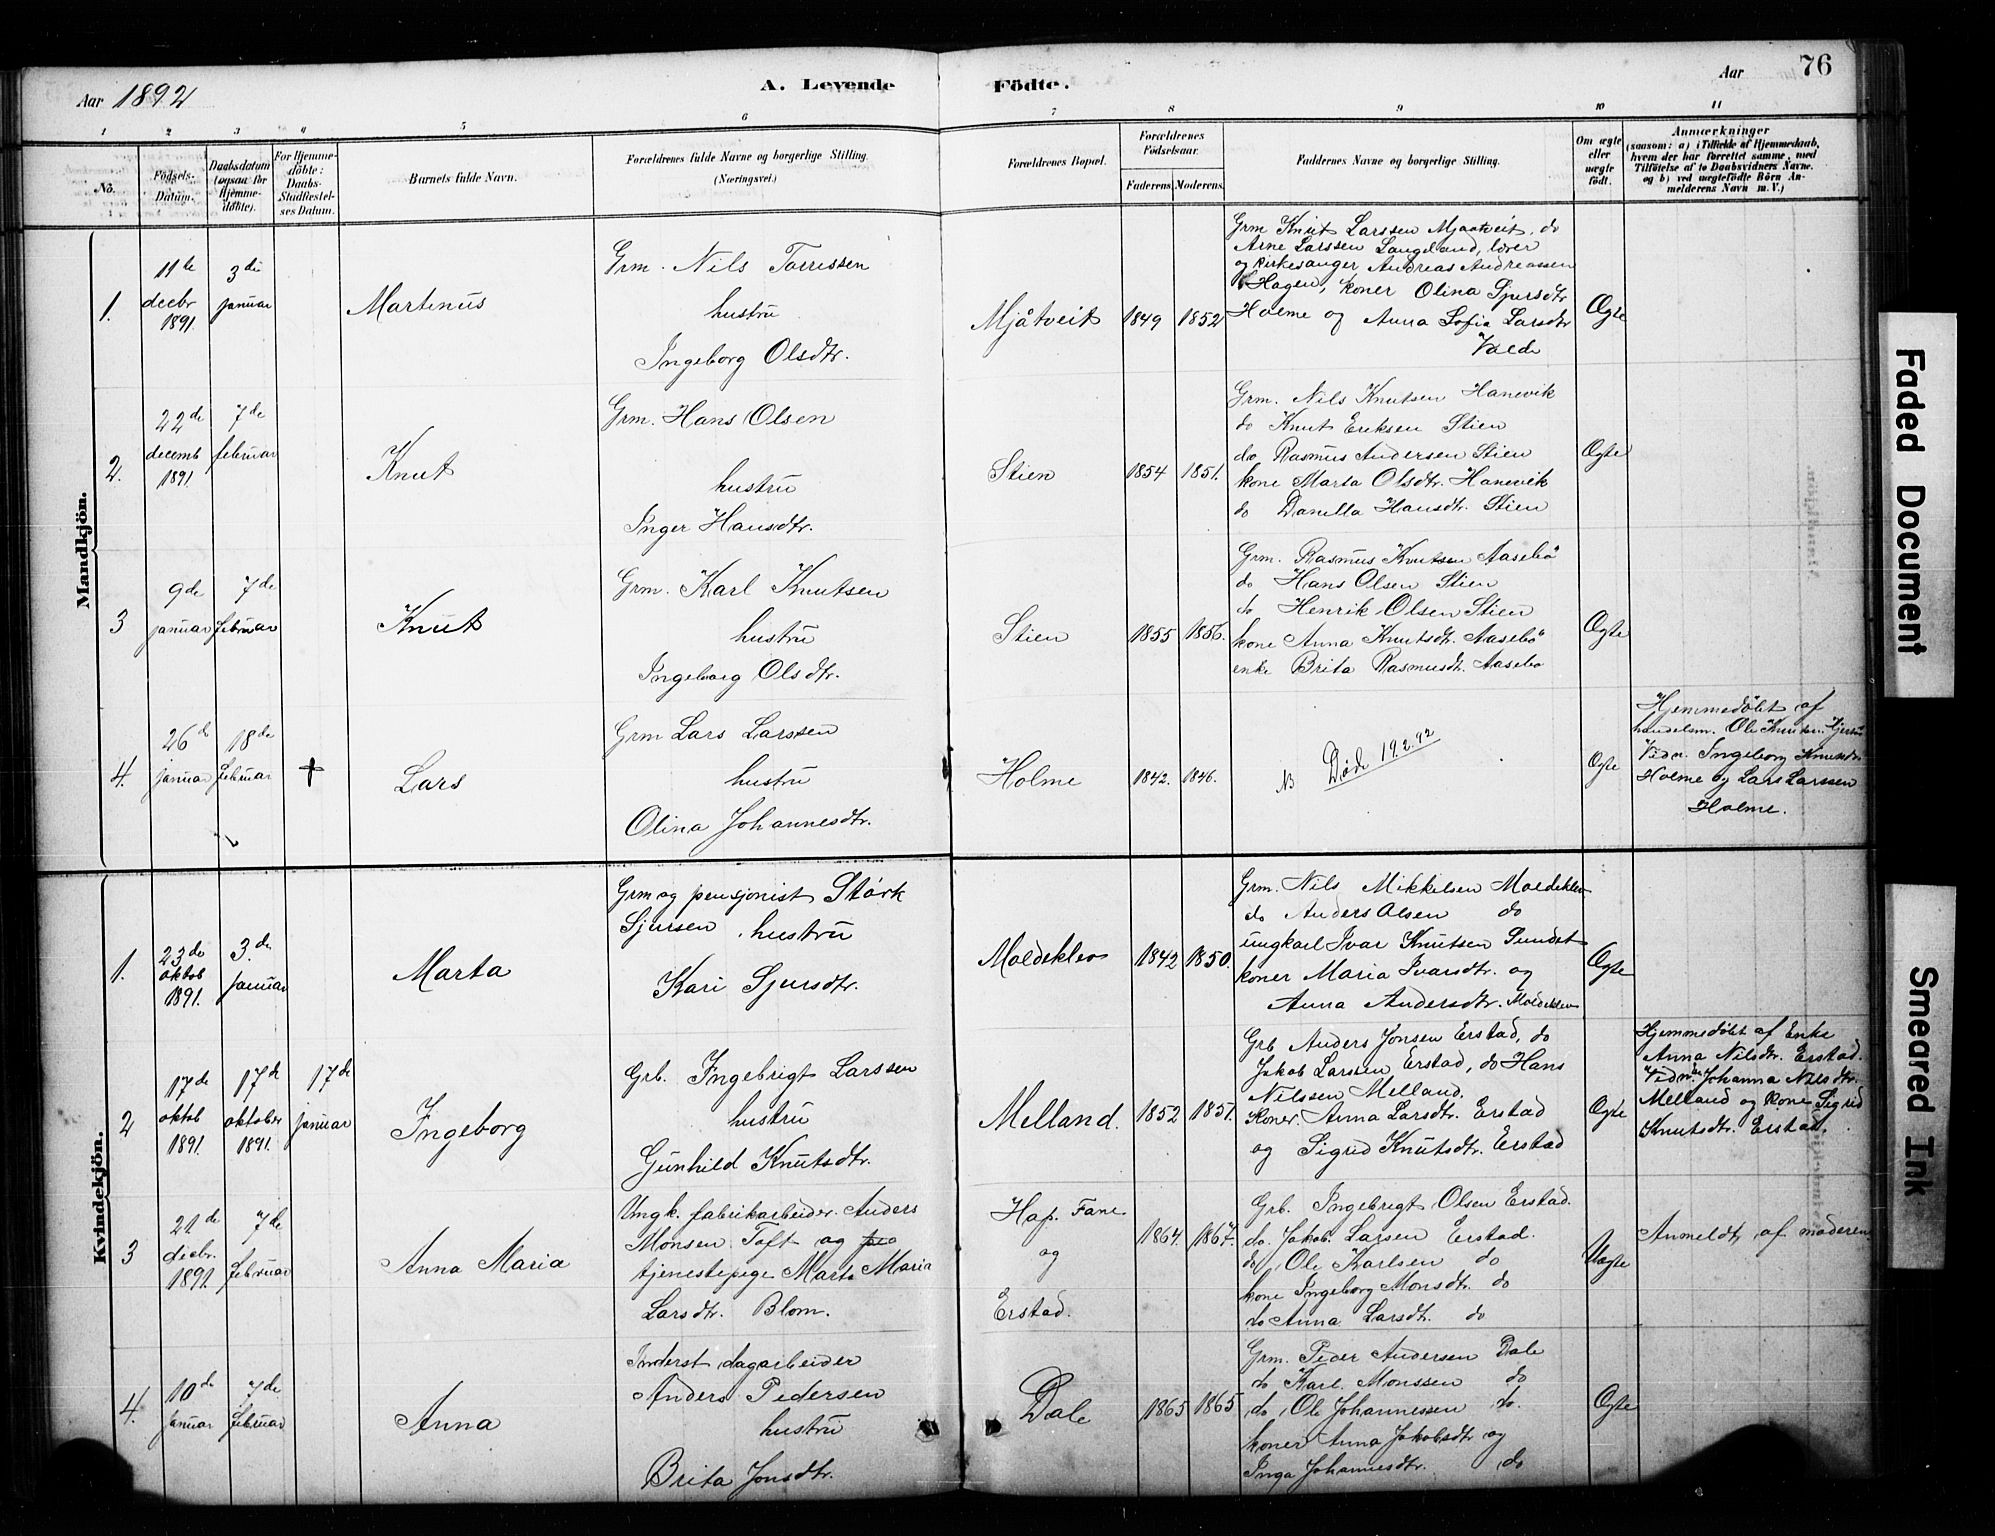 Aar 1892
A. Levende
Födte.
Aar
76
1
2
3
4
5
6
7
8
9
10
11
No.
Födsels-
Datum.
Daabsdatum
(ogsaa for
Hjemme-
döbte).
For Hjemme-
döbte:
Daabs-
Stadfæstel-
ses Datum.
Barnets fulde Navn.
Forældrenes fulde Navne og borgerlige Stilling.
(Næringsvei.)
Forældrenes Bopæl.
Forældrenes
Födselsaar.
Faderens.
Moderens.
Faddernes Navne og borgerlige Stilling.
Om ægte
eller
uægte
født.
Anmærkninger
(saasom: a) i Tilfælde af Hjemmedaab,
hvem der har forrettet samme, med
Tilföielse af to Daabsvidners Navne.
og b) ved uægtefödte Börn An-
melderens Navn m. V.)
Mandkjön.
1.
11te
decbr
1891
3die
januar
Martinus
Grm. Nils Torrissen
hustru
Ingeborg Olsdtr.
Mjåtveit
1849
1852
Grm Knut Larssen Mjaatveit, do
Arne Larssen Langeland, lærer
og kirkesanger Andreas Andreassen
Hagen, koner Olina Sjursdtr
Holme og Anna Sofia Larsdtr
Valde
Ægte
2.
22de
decemb
1891
7de
februar
Knut
Grm. Hans Olsen
hustru
Inger Hansdtr.
Stien
1854
1851.
Grm. Nils Knutsen Hanevik
do Knut Eriksen Stien
do Rasmus Andersen Stien
kone Marta Olsdtr. Hanevik
do Danilla Hansdtr. Stien
Ægte
3
9de
januar
7de
februar
Knut
Grm. Karl Knutsen
hustru
Ingeborg Olsdtr.
Stien
1855
1856.
Grm. Rasmus Knutsen Aasebö
do Hans Olsen Stien
do Henrik Olsen Stien
kone Anna Knutsdtr. Aasebö
enke Brita Rasmusdt. Aasebø
Ægte
4.
26de
januar
18de
februar
†
Lars
Grm Lars Larssen
hustru
Olina Johannesdtr.
Holme
1842.
1846.
NB Död 19.2.92
Ægte
Hjemmedöbt af
handelsm. Ole Knutsen
Vidn. Ingeborg Knutsdtr
Holme og Lars Larssen
Holme.
Kvindekjön.
1.
23de
oktob
1891.
3de
januar
Marta
Grm og pensjonist Störk
Sjursen, hustru
Kari Sjursdtr.
Moldeklev
1842
1850.
Grm. Nils Mikkelsen Moldeklev
do Anders Olsen do
ungkarl Ivar Knutsen Sundet
koner Maria Ivarsdtr. og
Anna Andersdtr. Moldeklev
Ægte
2
17de
oktob
1891
17de
oktober
1891.
17de
januar
Ingeborg
Grb. Ingebrigt Larssen
hustru
Gunhild Knutsdtr.
Melland.
1852
1851.
Grb Anders Jonsen Erstad, do
Jakob Larsen Erstad, do Hans
Nilssen Melland.
Koner. Anna Larsdtr. Erstad
og Sigrid Knutsdtr. Erstad
Ægte
Hjemmedöbt af Enke
Anna Nilsdtr. Erstad.
Vidn. Johanna Nilsdtr.
Melland og kone Sigrid
Knutsdtr. Erstad.
3
21de
decbr.
1891
7de
februar
Anna Maria
Ungk. fabrikarbeider. Anders
Monsen Toft og
tjenestepige Marta Maria
Larsdtr. Blom.
Hop. Fane
og
Erstad.
1864.
1867.
Grb. Ingebrigt Olsen Erstad.
do. Jakob Larsen Erstad.
do, Ole Karlsen do
kone Ingeborg Monsdtr. do
do Anna Larsdt. do
Uægte
Anmeldt af moderen
4.
10de
januar
7de
februar
Anna
Inderst, dagarbeider
Anders Pedersen
hustru
Brita Jonsdtr.
Dale
1865
1865
Grm. Peder Andersen Dale
do Karl. Monssen do
do, Ole Johannessen do.
koner Anna Jakobsdtr og
Inga Johannesdtr. do
Ægte
Faded Document
Smeared Ink